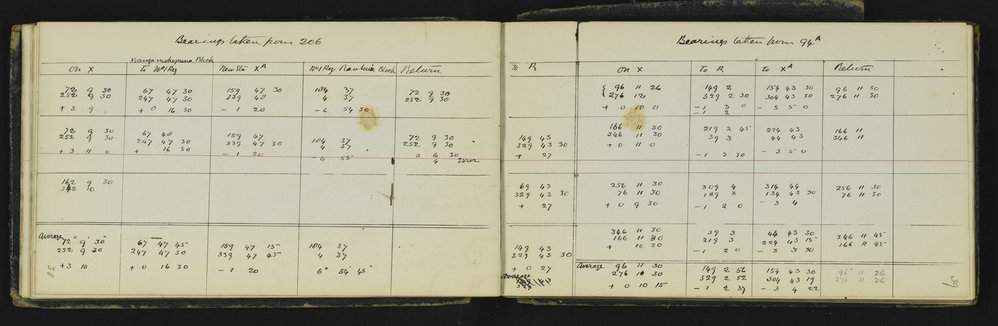 Bearings taken from 206
on X to Wd Reg New Stn XA Return
72 9 30 67 47 30 159 47 30 184 37 72 9 30
252 9 30 247 47 30 339 48 4 37 252 9 30
+ 3 9 + 0 16 30 - 1 20 - 6 54 50
72 9 30 67 48 159 47 184 37 72 9 30
252 9 30 247 47 30 339 47 30 4 37 252 9 30
+ 3 11 0 + 16 30 - 1 20 - 6 55 3 6 30
4 error
162 9 30
342 10
Average
72° 9' 30" 67 47 45 159 47 15 184 37
252 9 30 247 47 30 339 47 45 4 37
+3 10 + 0 16 30 - 1 20 6° 54' 45"
38
Bearings taken from 94A
To R on X To R to XA Return
96 11 26 149 2 154 43 30 96 11 30
276 12 329 2 30 304 43 30 276 11 30
+ 0 10 0 - 1 3 0 - 3 5 0
- 1 2
149 43 166 11 30 219 2 45 224 43 166 11
329 43 30 346 11 30 39 3 44 43 346 11
+ 27 + 0 11 0 - 1 3 30 - 3 5 0
69 43 256 11 30 309 4 314 44 256 11 30
329 43 30 76 11 30 129 3 134 43 30 76 11 30
+ 27 + 0 9 30 - 1 2 0 - 3 4
346 11 30 39 3 44 43 30 346 11 45
149 43 166 11 30 219 3 224 43 15 166 11 45
329 43 30 + 10 30 - 1 2 0 - 3 3 30
+ 0 27 Average 96 11 30 149 2 52 154 43 30 96° 11 26
Average 276 11 30 329 2 52 304 43 19 276 11 26
+ 0 10 15 - 1 2 37 - 3 4 22
39